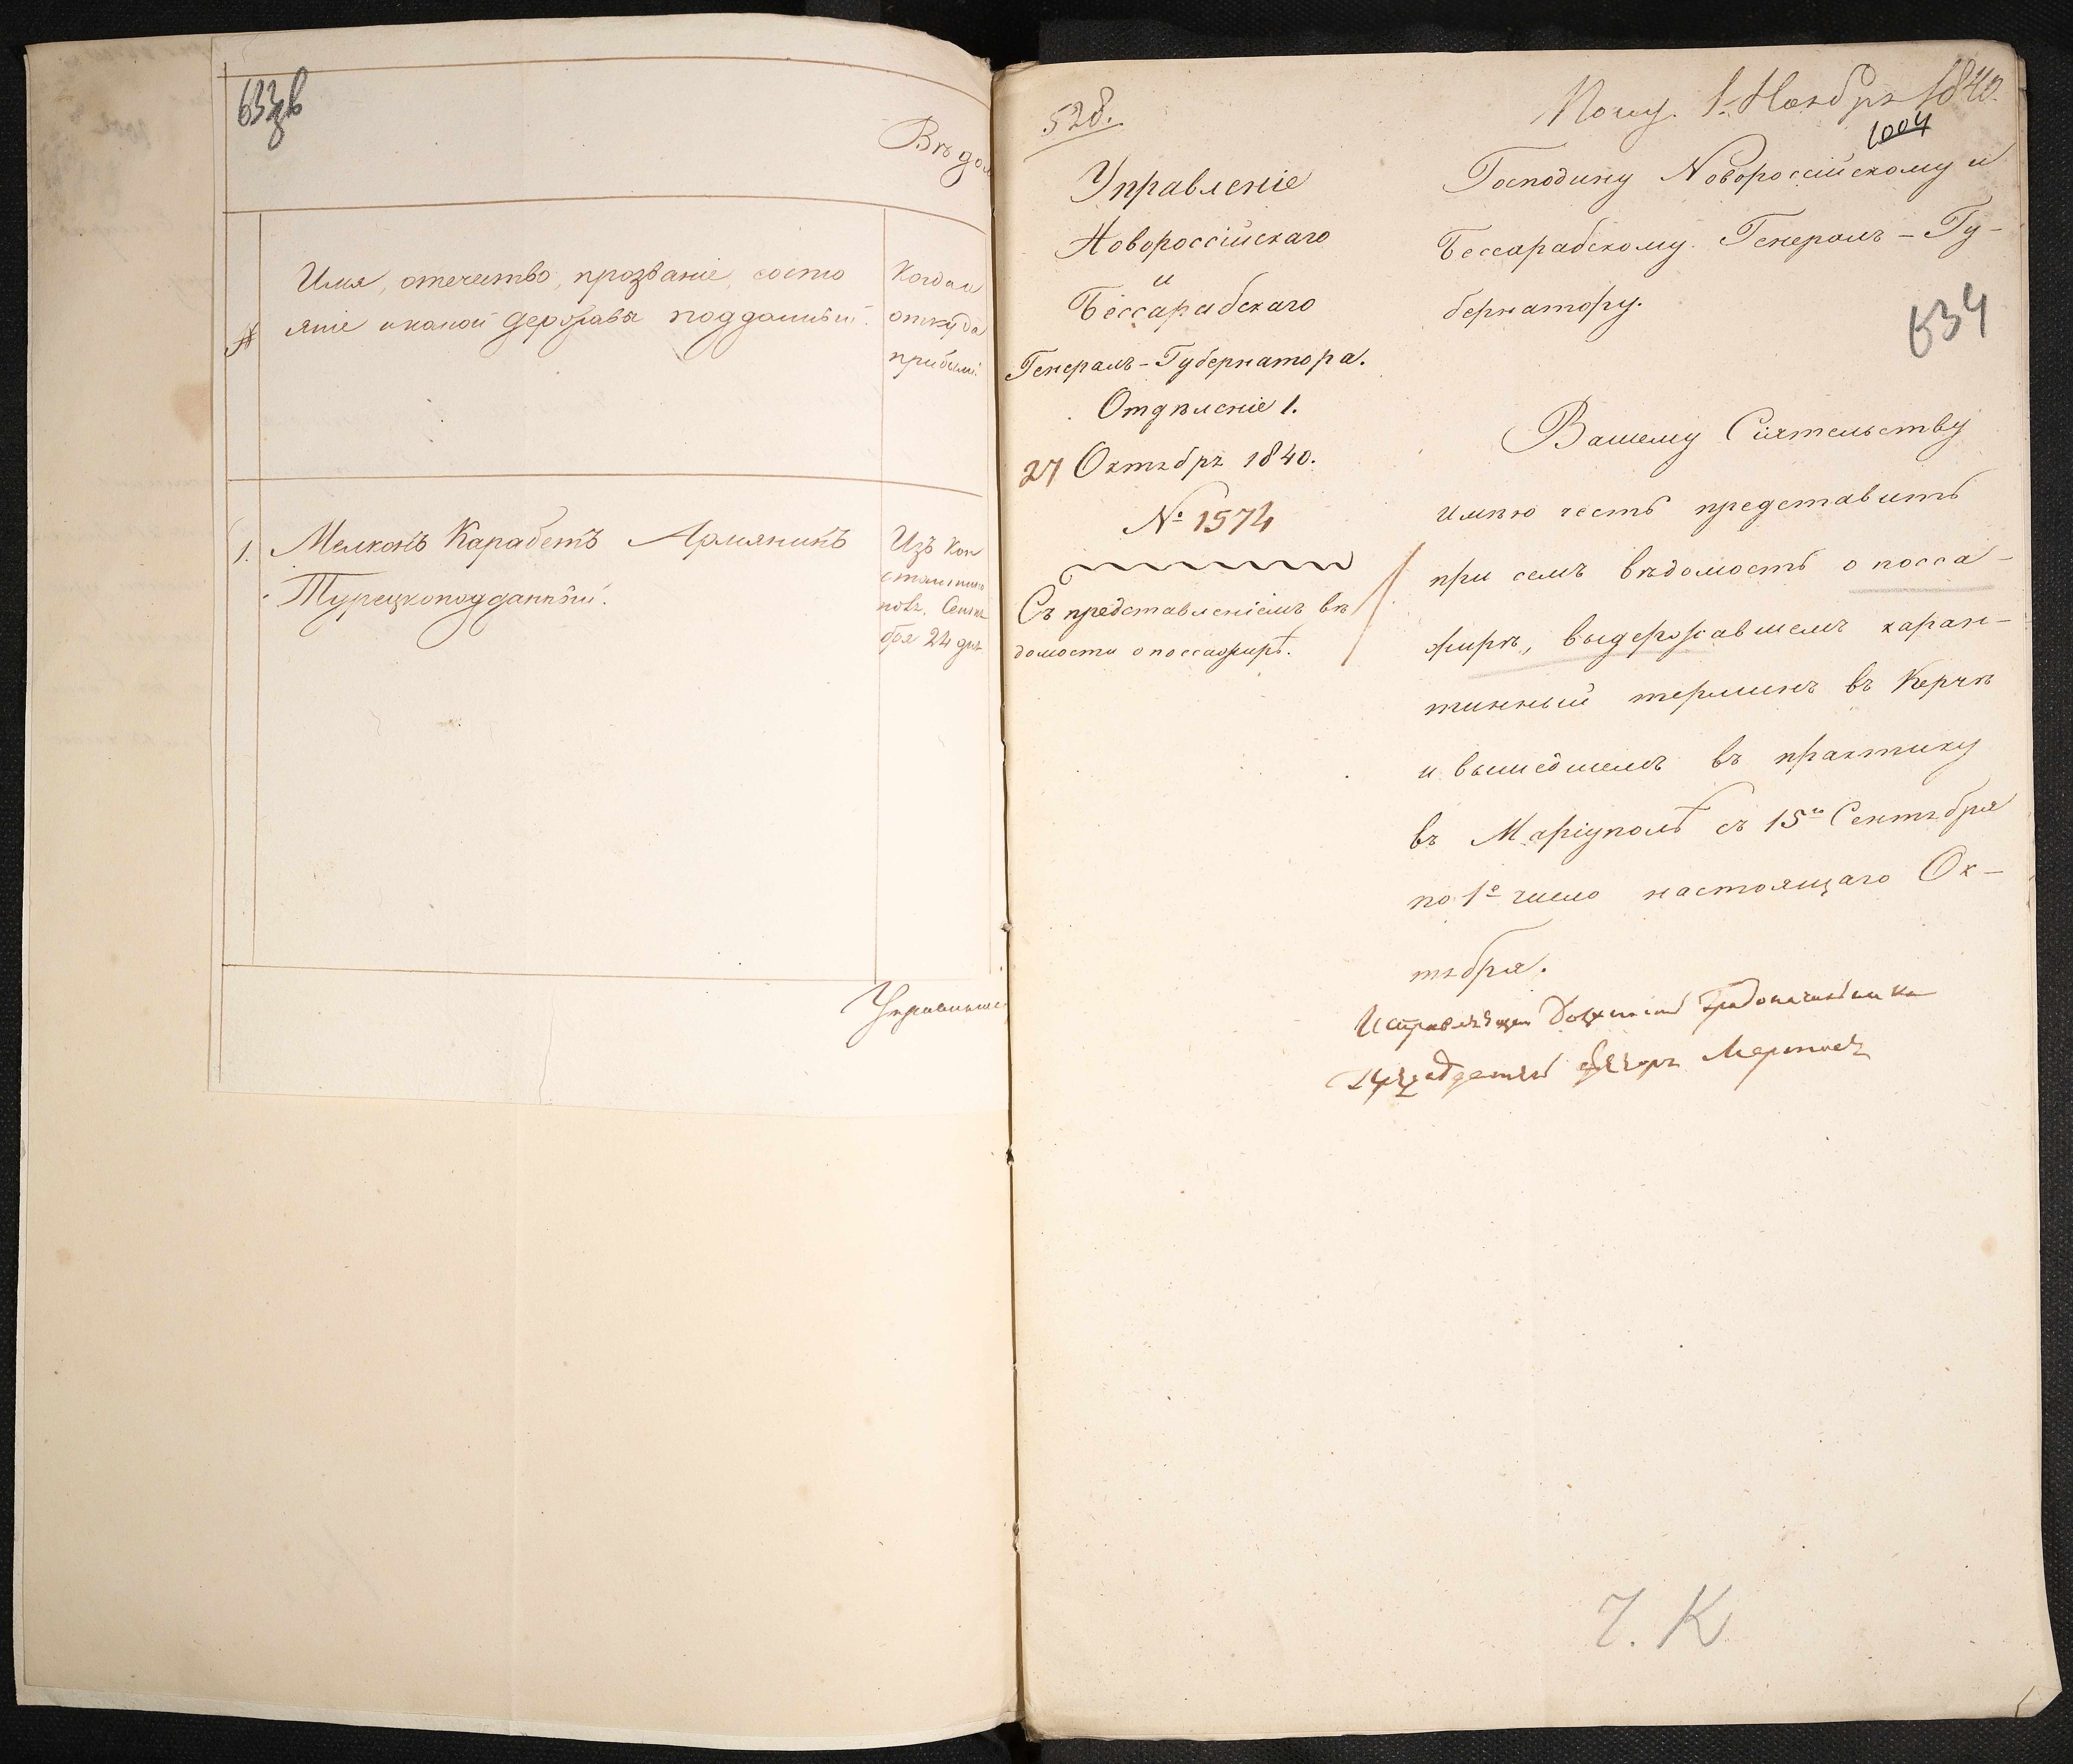 633б
Вѣдом
№
Имя, отечество, прозваніе, состо
яніе и какой державы подданный.
Когда и
откуда
прибылъ.
1.
Мелконъ Карабетъ Армянинъ
Турецкоподданный.
Изъ Кон
стантино
поля, Сентя
бря 24 дня
528.
Управленіе
Новороссійскаго
и
Бессарабскаго
Генералъ-Губернатора.
Отдѣленіе 1.
27 Октября 1840.
№ 1574
Съ представленіемъ вѣ
домости о пассажирѣ.
Получ. 1 Ноября 1840.
1004
Господину Новороссійскому и
Бессарабскому Генералъ-Гу-
бернатору.
634
Вашему Сіятельству
имѣю честь представить
при семъ вѣдомость о пасса-
жирѣ, выдержавшемъ каран-
тинный терминъ въ Керчи
и вышедшемъ въ практику
въ Маріуполѣ съ 15го Сентября
по 1е число настоящаго Ок-
тября.
Исправляющій Должность Градоначальника
Ч. К